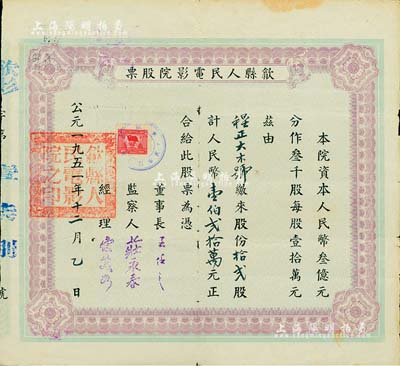 上海阳明拍卖
歙縣人民電影院股票
本院資本人民幣叁億元
分作叁千股每股壹拾萬元
茲由
程正大木號繳來股份拾弍股
計人民幣壹佰弍拾萬元正
合給此股票為憑
董事長
監察人
經理
公元一九五一年十二月乙日
歙縣人民電影院之印
號
上海阳明拍卖